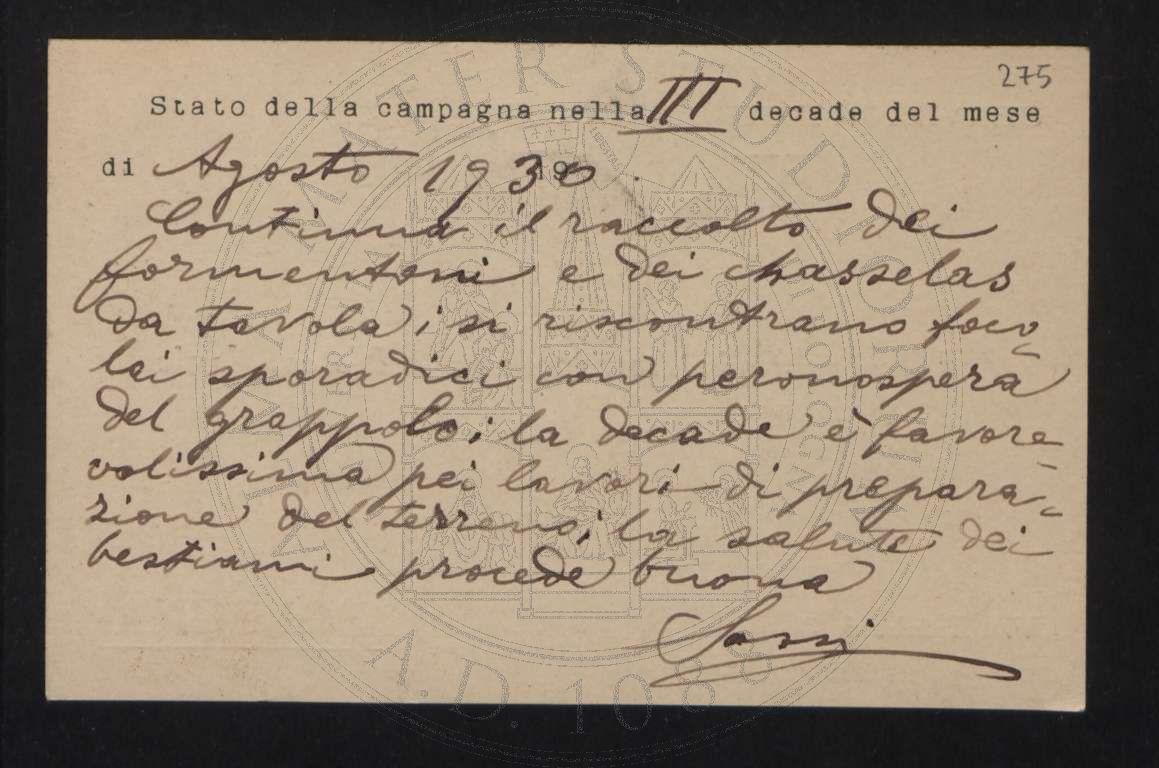 275
Stato della campagna nella III decade del mese
di Agosto 1930.
Continua il raccolto dei
formentoni e dei chasselas
da tavola; si riscontrano foco-
lai sporadici con peronospera
del grappolo; la decade è favore-
volissima pei lavori di prepara-
zione del terreno; la salute dei
bestiami procede buona
ALMA MATER STUDIORUM
A.D. 1088